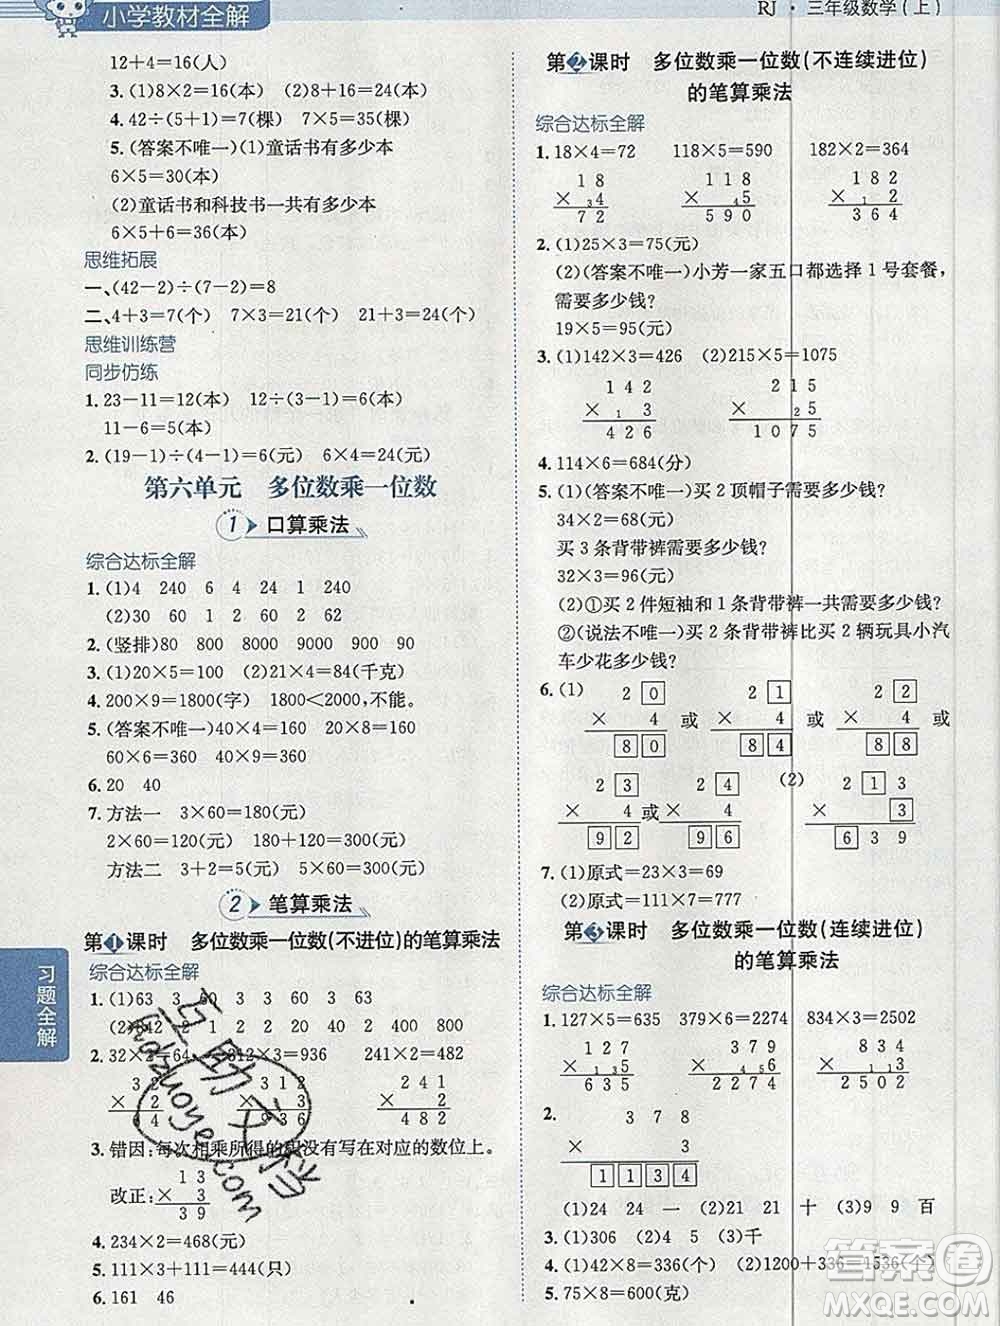 小学教材全解
RJ·三年级数学(上)
12+4=16(人)
3. (1)8×2=16(本) (2)8+16=24(本)
4. 42÷(5+1)=7(棵) 7×5=35(棵)
5. (答案不唯一)(1)童话书有多少本
6×5=30(本)
(2)童话书和科技书一共有多少本
6×5+6=36(本)
思维拓展
一、(42-2)÷(7-2)=8
二、4+3=7(个) 7×3=21(个) 21+3=24(个)
思维训练营
同步仿练
1. 23-11=12(本) 12÷(3-1)=6(本)
11-6=5(本)
2. (19-1)÷(4-1)=6(元) 6×4=24(元)
第六单元 多位数乘一位数
1 口算乘法
综合达标全解
1. (1)4 240 6 4 24 1 240
(2)30 60 1 2 60 62
2. (竖排)80 800 8000 900 900 90
3. (1)20×5=100 (2)21×4=84(千克)
4. 200×9=1800(字) 1800<2000,不能。
5. (答案不唯一)40×4=160 20×8=160
60×6=360 40×9=360
6. 20 40
7. 方法一 3×60=180(元)
2×60=120(元) 180+120=300(元)
方法二 3+2=5(元) 5×60=300(元)
2 笔算乘法
第1课时 多位数乘一位数(不进位)的笔算乘法
综合达标全解
1. (1)63 3 60 3 3 60 3 63
(2)842 2 2 40 20 20 400 800
2. 32×2=64 312×3=936 241×2=482
3 2 3 1 2 2 4 1
× 2 × 3 × 2
6 4 9 3 6 4 8 2
3. 错因:每次相乘所得的积没有写在对应的数位上。
1 3
改正: × 3
3 9
4. 234×2=468(元)
5. 111×3+111=444(只)
6. 161 46
习题全解
第2课时 多位数乘一位数(不连续进位)
的笔算乘法
综合达标全解
1. 18×4=72 118×5=590 182×2=364
1 8 1 1 8 1 8 2
× 3 4 × 4 5 × 1 2
7 2 5 9 0 3 6 4
2. (1)25×3=75(元)
(2)(答案不唯一)小芳一家五口都选择1号套餐,
需要多少钱?
19×5=95(元)
3. (1)142×3=426 (2)215×5=1075
1 4 2 2 1 5
× 1 3 × 2 5
4 2 6 1 0 7 5
4. 114×6=684(分)
5. (答案不唯一)买2顶帽子需要多少钱?
34×2=68(元)
买3条背带裤需要多少钱?
32×3=96(元)
(2)①买2件短袖和1条背带裤一共需要多少钱?
②(说法不唯一)买2条背带裤比买2辆玩具小汽
车少花多少钱?
6. (1) 2 0 2 1 2 2
× 4 或 × 4 或 × 4 或
8 0 8 4 8 8
2 3 2 4 (2) 2 1 3
× 4 或 × 4 × 3
9 2 9 6 6 3 9
7. (1)原式=23×3=69
(2)原式=111×7=777
第3课时 多位数乘一位数(连续进位)
的笔算乘法
综合达标全解
1. 127×5=635 379×6=2274 834×3=2502
1 2 7 3 7 9 8 3 4
× 1 3 5 × 4 5 6 × 1 1 3
6 3 5 2 2 7 4 2 5 0 2
2. 3 7 8
× 3
1 1 3 4
(1)24 24 一 (2)21 21 十 (3)9 9 百
3. (1) (2)4 5 (3)千
4. (1)42×8=336(个) (2)1200+336=1536(个)
5. 75×8=600(克)
互助文档
hdzuoye.com
答案圈
MXQE.COM